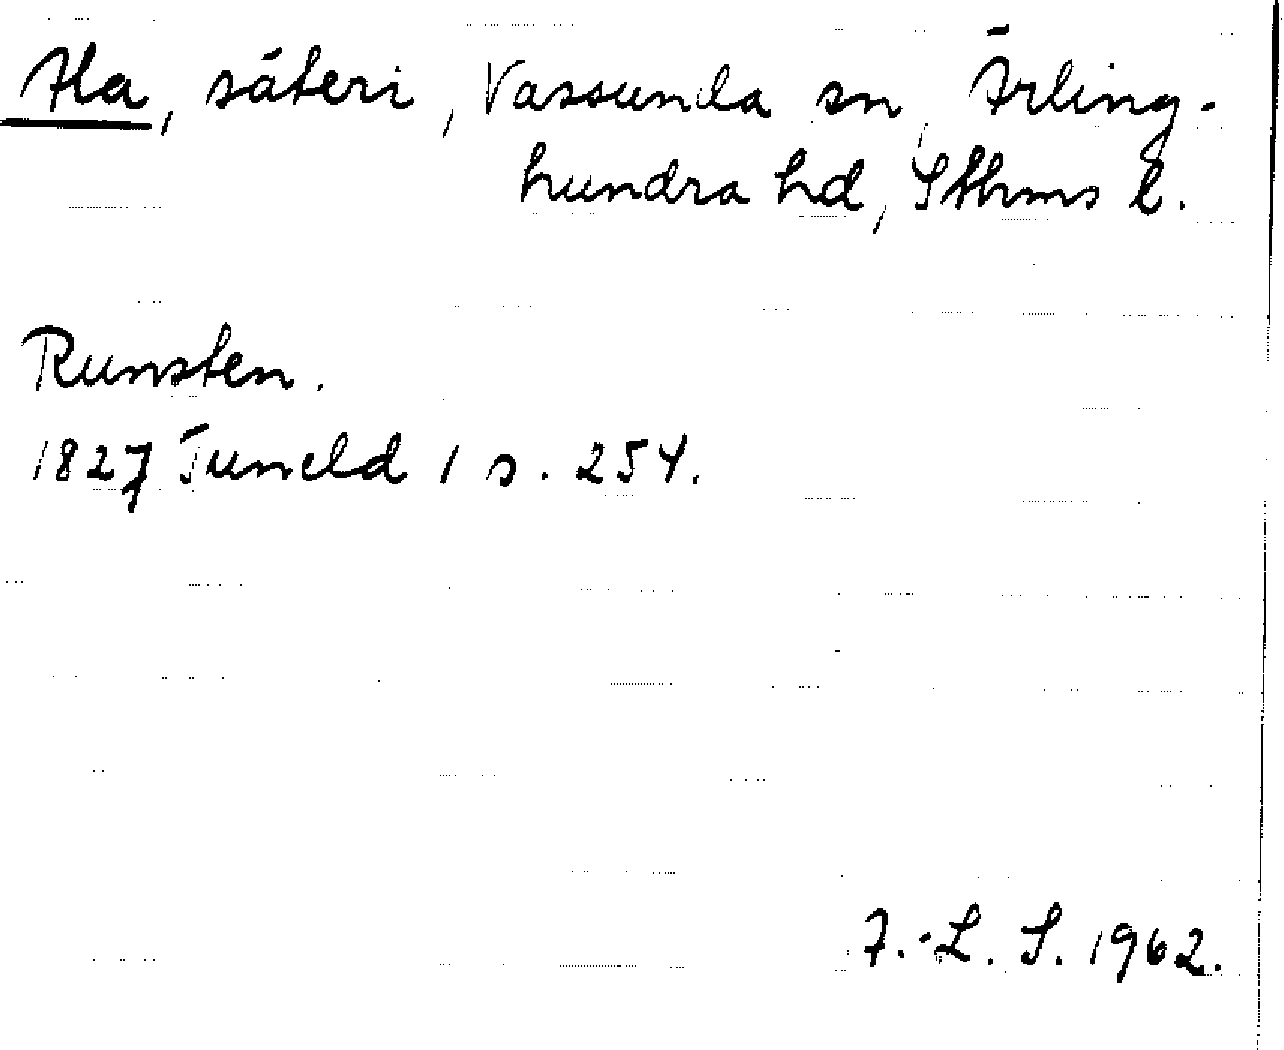 Ala, säteri, Vassunda sn, Ärling-
hundra hd, Sthms l.
Runsten.
1827 Tuneld 1 s. 254.
F.-L. S. 1962.